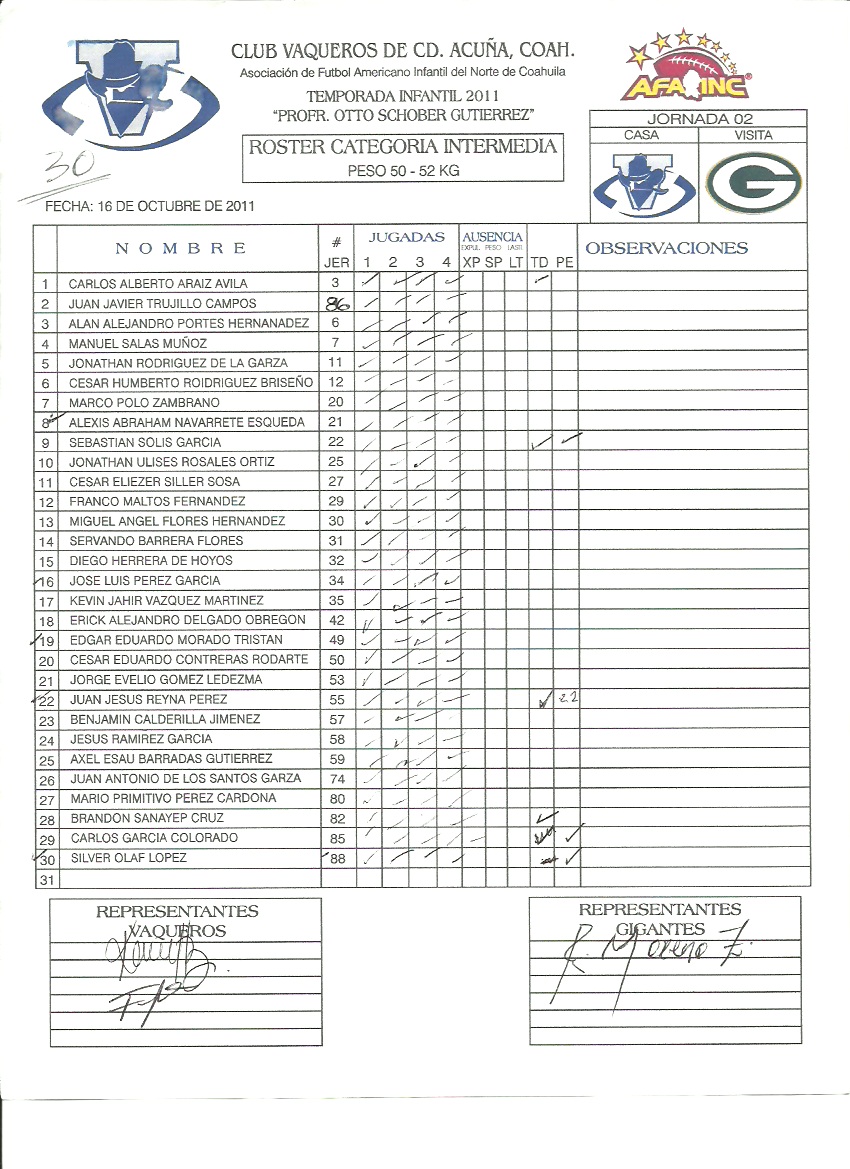 CLUB VAQUEROS DE CD. ACUÑA, COAH.
Asociación de Futbol Americano Infantil del Norte de Coahuila
TEMPORADA INFANTIL 2011
"PROFR. OTTO SCHOBER GUTIERREZ"
ROSTER CATEGORIA INTERMEDIA
PESO 50 - 52 KG
AFAINC®
JORNADA 02
CASA VISITA
V G
30
FECHA: 16 DE OCTUBRE DE 2011
NOMBRE # JER JUGADAS 1 2 3 4 AUSENCIA EXPUL PESO LAST XP SP LT TD PE OBSERVACIONES
1 CARLOS ALBERTO ARAIZ AVILA 3
2 JUAN JAVIER TRUJILLO CAMPOS 86
3 ALAN ALEJANDRO PORTES HERNANADEZ 6
4 MANUEL SALAS MUÑOZ 7
5 JONATHAN RODRIGUEZ DE LA GARZA 11
6 CESAR HUMBERTO ROIDRIGUEZ BRISEÑO 12
7 MARCO POLO ZAMBRANO 20
8 ALEXIS ABRAHAM NAVARRETE ESQUEDA 21
9 SEBASTIAN SOLIS GARCIA 22
10 JONATHAN ULISES ROSALES ORTIZ 25
11 CESAR ELIEZER SILLER SOSA 27
12 FRANCO MALTOS FERNANDEZ 29
13 MIGUEL ANGEL FLORES HERNANDEZ 30
14 SERVANDO BARRERA FLORES 31
15 DIEGO HERRERA DE HOYOS 32
16 JOSE LUIS PEREZ GARCIA 34
17 KEVIN JAHIR VAZQUEZ MARTINEZ 35
18 ERICK ALEJANDRO DELGADO OBREGON 42
19 EDGAR EDUARDO MORADO TRISTAN 49
20 CESAR EDUARDO CONTRERAS RODARTE 50
21 JORGE EVELIO GOMEZ LEDEZMA 53
22 JUAN JESUS REYNA PEREZ 55 22
23 BENJAMIN CALDERILLA JIMENEZ 57
24 JESUS RAMIREZ GARCIA 58
25 AXEL ESAU BARRADAS GUTIERREZ 59
26 JUAN ANTONIO DE LOS SANTOS GARZA 74
27 MARIO PRIMITIVO PEREZ CARDONA 80
28 BRANDON SANAYEP CRUZ 82
29 CARLOS GARCIA COLORADO 85
30 SILVER OLAF LOPEZ 88
31
REPRESENTANTES
VAQUEROS
REPRESENTANTES
GIGANTES
R. Moreno Z.